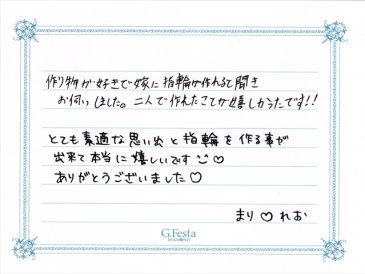 作り物が好きで嫁に指輪が作れると聞き
お伺いしました。二人で作れたことが嬉しかったです!!
とても素適な思い出と指輪を作る事が
出来て本当に嬉しいです ♡
ありがとうございました♡
まり ♡ れお
G.Festa
DIAMOND